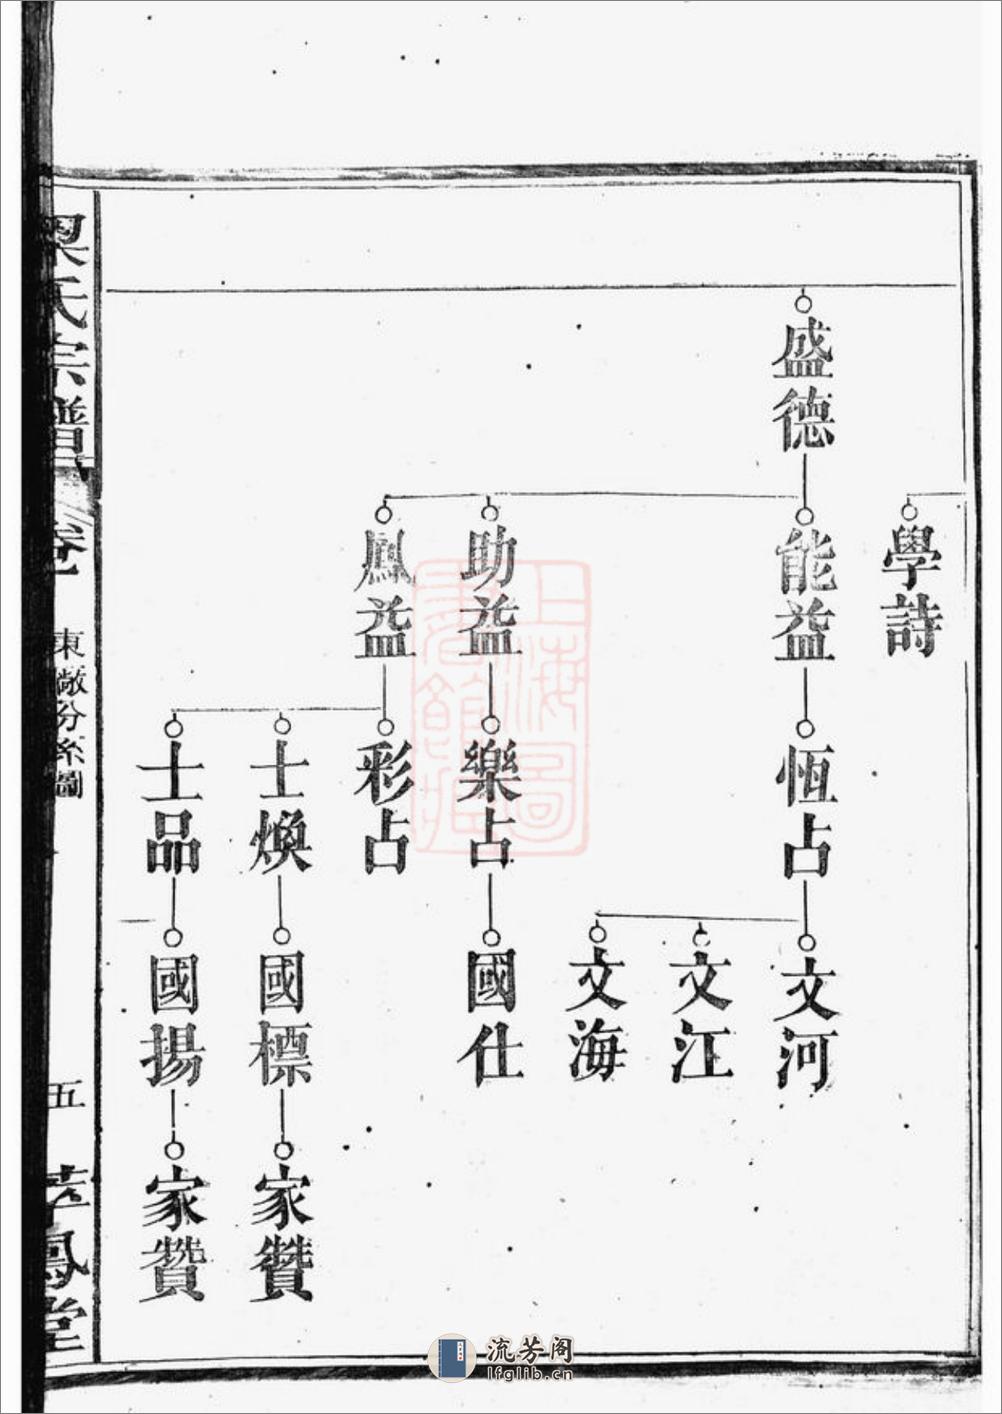 學詩
盛德
能益
恆占
文河
文江
文海
助益
樂占
國仕
鳳益
彩占
士煥
國標
家贊
士品
國揚
家贊
梁氏宗譜
卷一
東廠分系圖
五
萃鳳堂
上海圖
書館藏
流芳阁
lfglib.cn